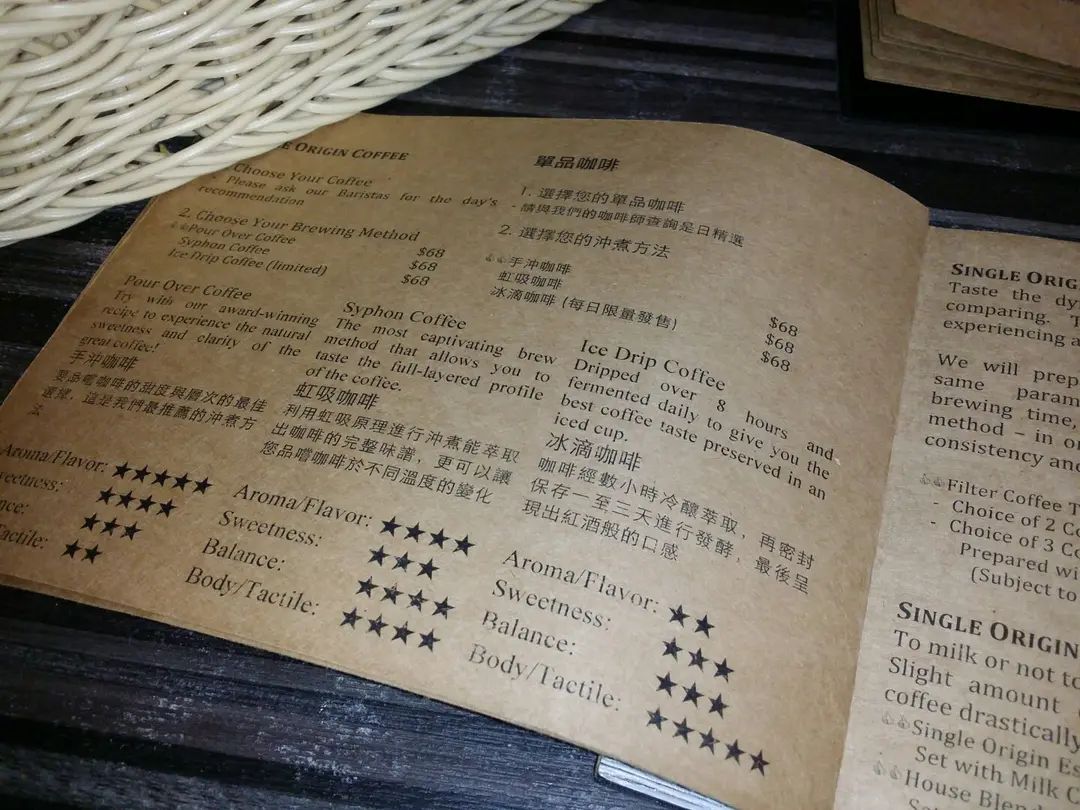 ORIGIN COFFEE
Choose Your Coffee
- Please ask our Baristas for the day's
recommendation
2. Choose Your Brewing Method
Pour Over Coffee $68
Syphon Coffee $68
Ice Drip Coffee (limited) $68
單品咖啡
1. 選擇您的單品咖啡
- 請與我們的咖啡師查詢是日精選
2. 選擇您的沖煮方法
手沖咖啡 $68
虹吸咖啡 $68
冰滴咖啡 (每日限量發售) $68
Pour Over Coffee
Try with our award-winning
recipe to experience the natural
sweetness and clarity of the
great coffee!
手沖咖啡
要品嚐咖啡的甜度與層次的最佳
選擇，這是我們最推薦的沖煮方
法
Aroma/Flavor: ★★★★★
Sweetness: ★★★★
★★★
Tactile: ★★
Syphon Coffee
The most captivating brew
method that allows you to
taste the full-layered profile
of the coffee.
虹吸咖啡
利用虹吸原理進行沖煮能萃取
出咖啡的完整味譜，更可以讓
您品嚐咖啡於不同溫度的變化
Aroma/Flavor: ★★★★
Sweetness: ★★★
Balance: ★★★★
Body/Tactile: ★★★★
Ice Drip Coffee
Dripped over 8 hours and
fermented daily to give you the
best coffee taste preserved in an
iced cup.
冰滴咖啡
咖啡經數小時冷釀萃取，再密封
保存一至三天進行發酵，最後呈
現出紅酒般的口感
Aroma/Flavor: ★★
Sweetness: ★★★
Balance: ★★★
Body/Tactile: ★★★★★
SINGLE
Taste the
comparing.
experiencing
We will
same
brewing time,
method – in
consistency
Filter Coffee
- Choice of 2
- Choice of 3
Prepared
(Subject to
SINGLE ORIGIN
To milk or not to
Slight amount
coffee drastically
Single Origin
Set with Milk
House